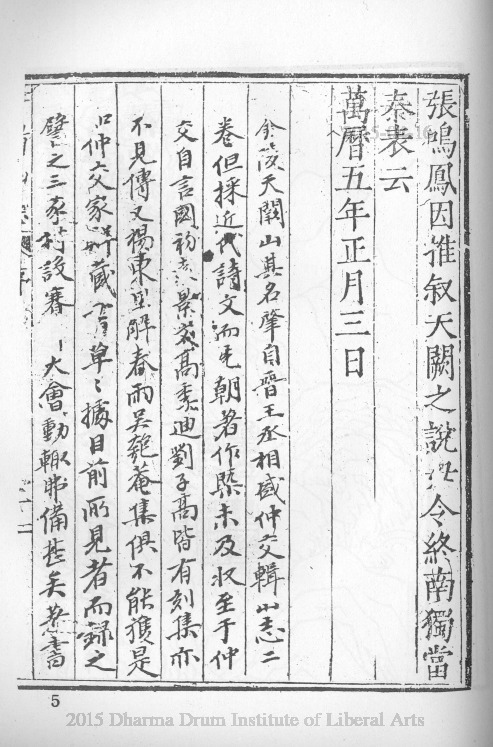 張鳴鳳因推叙天闕之說以令終南獨當
秦表云
萬曆五年正月三日
金陵天闕山其名肇自晉王丞相盛仲交輯山志二
卷但採近代詩文而元朝著作槩未及收至于仲
交自言國初景高季迪劉子高皆有刻集亦
不見傳又楊東里解春雨吳匏菴集俱不能獲是
仲交家藏草草據目前所見者而錄之
譬之三家村設賽大會動輒備矣
5
2015 Dharma Drum Institute of Liberal Arts